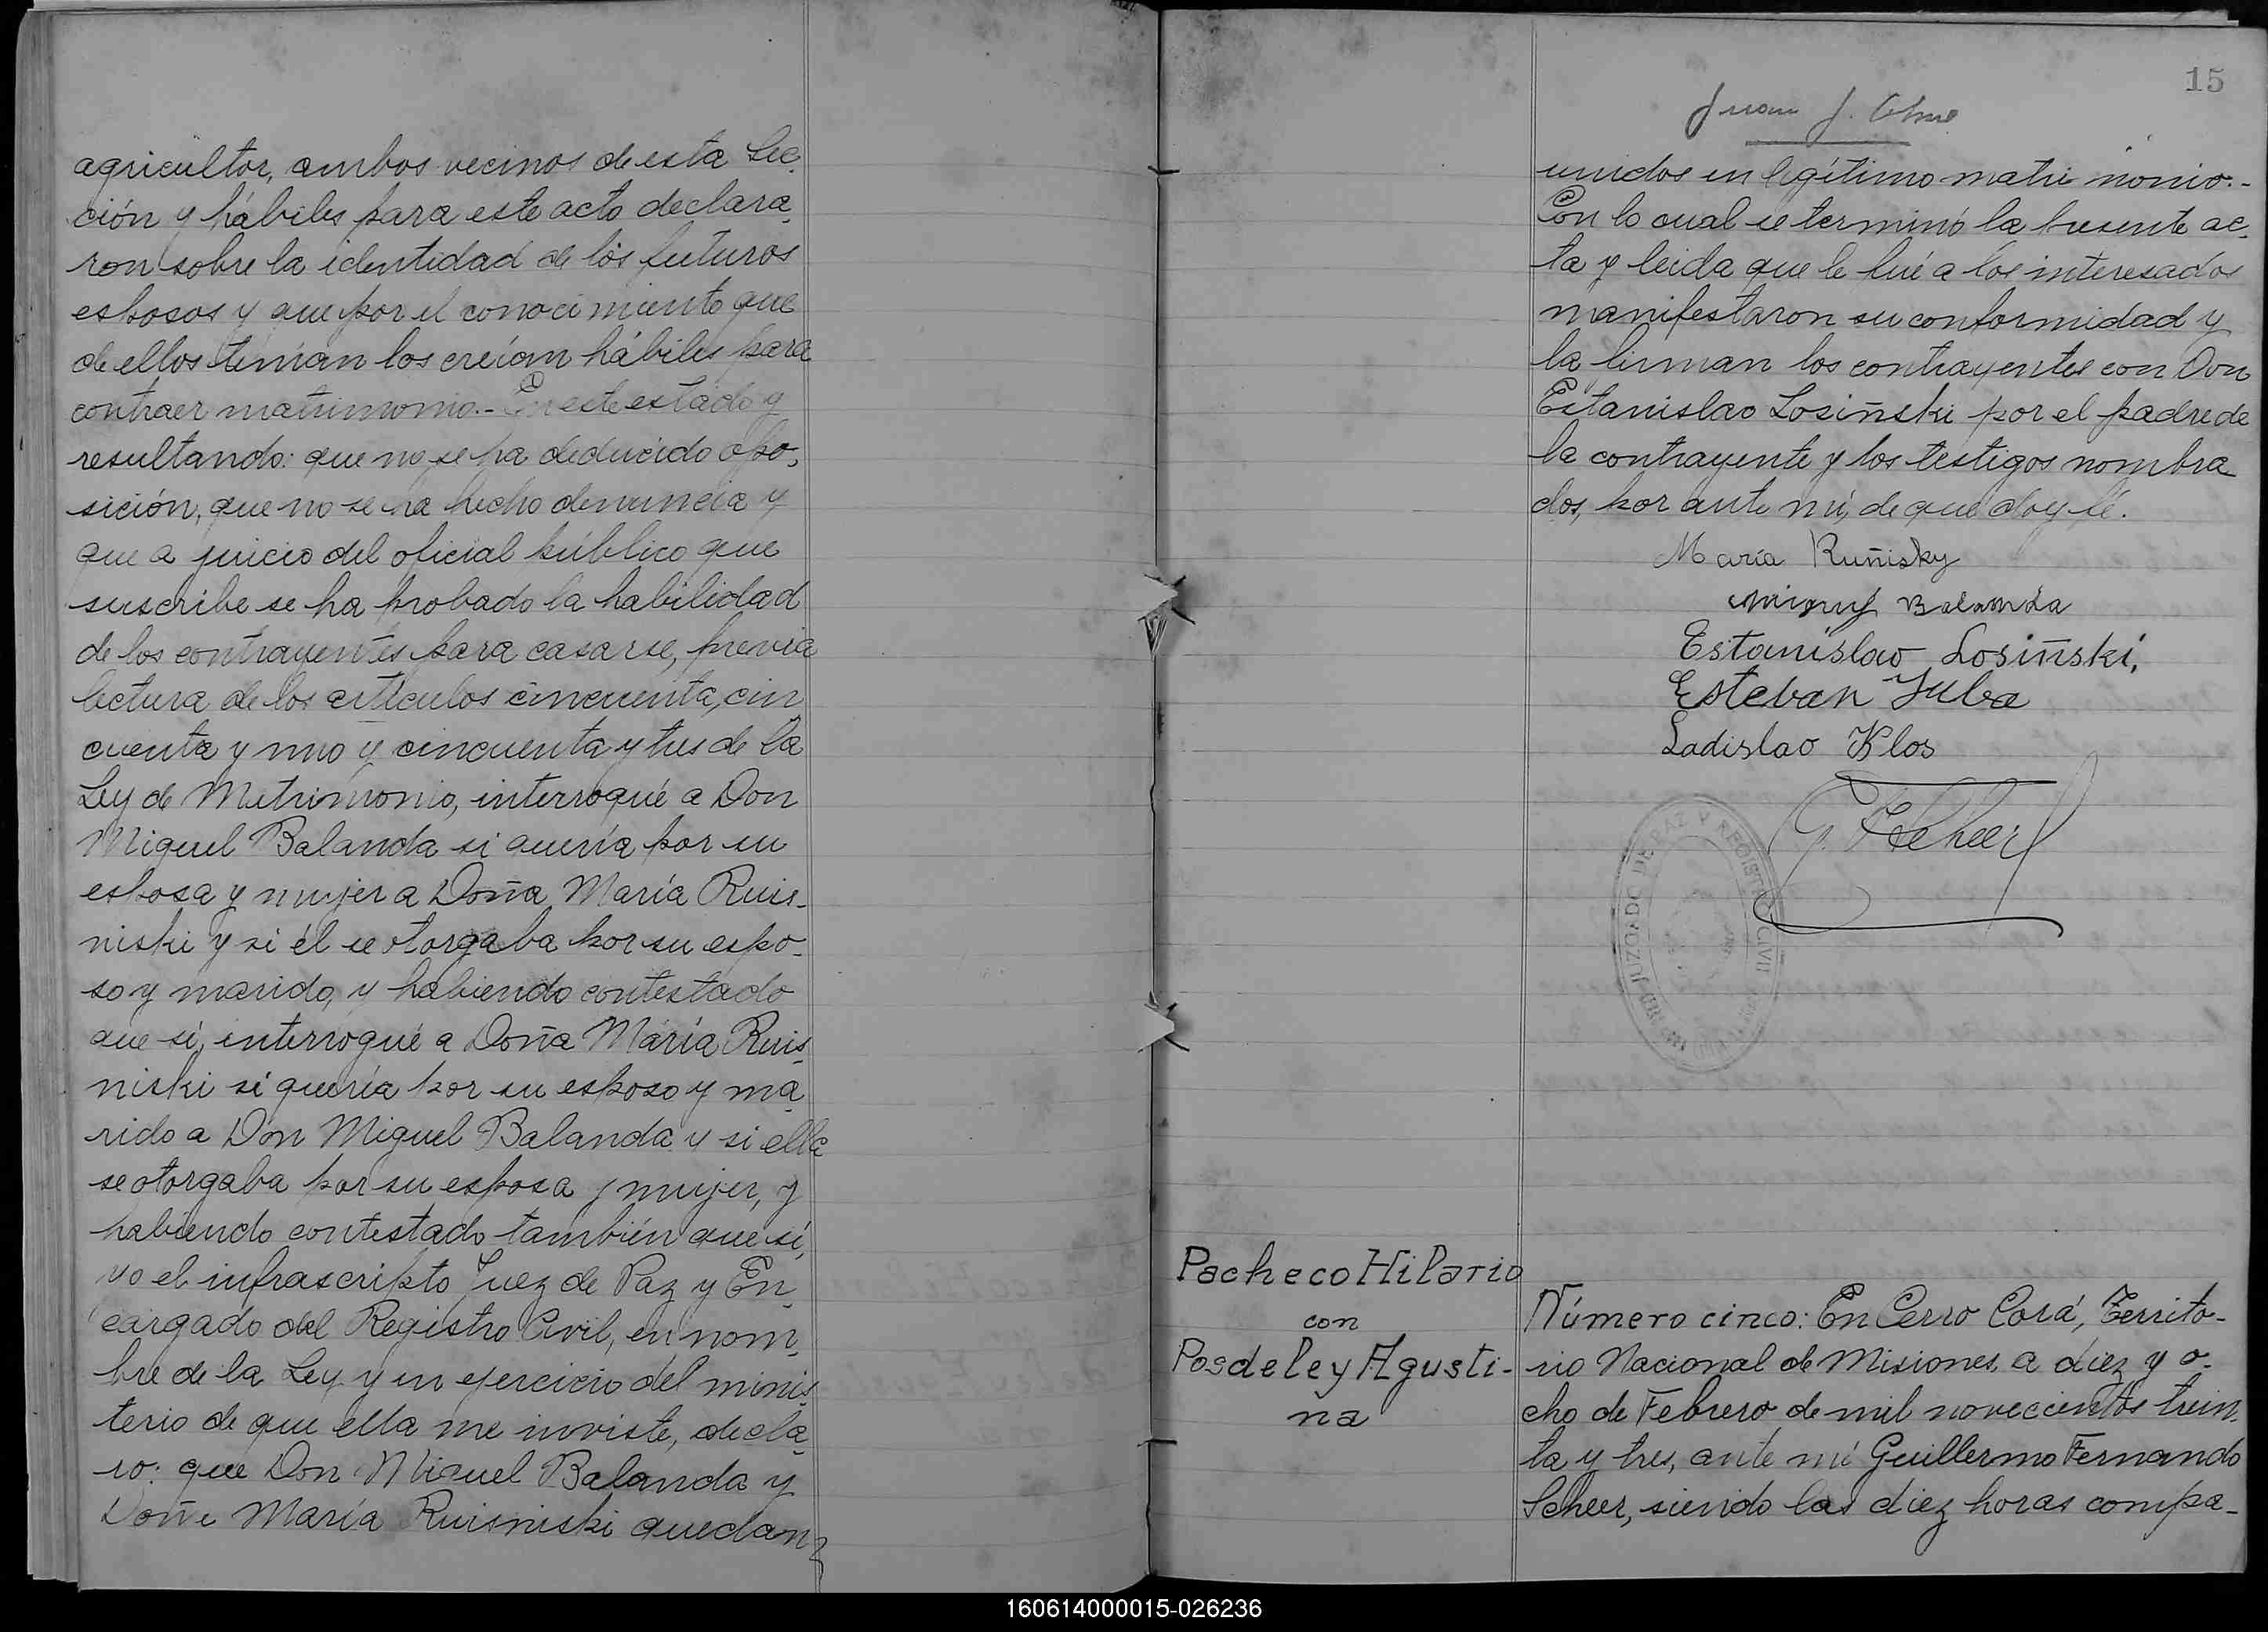 agricultor, ambos vecinos de esta Sec-
ción y hábiles para este acto declara-
ron sobre la identidad de los futuros
esposos y que por el conocimiento que
de ellos tenían los creían hábiles para
contraer matrimonio.- En este estado y
resultando: que no se ha deducido opo-
sición, que no se ha hecho denuncia y
que a juicio del oficial público que
suscribe se ha probado la habilidad
de los contrayentes para casarse, previa
lectura de los artículos cincuenta, cin
cuenta y uno y cincuenta y tres de la
Ley de Matrimonio, interrogué a Don
Miguel Balanda si quería por su
esposa y mujer a Doña María Ruis-
niski y si él se otorgaba por su espo-
so y marido, y habiendo contestado
que sí, interrogué a Doña María Ruis-
niski si quería por su esposo y ma-
rido a Don Miguel Balanda y si ella
se otorgaba por su esposa y mujer, y
habiendo contestado también que sí,
yo el infrascripto Juez de Paz y En-
cargado del Registro Civil, en nom-
bre de la Ley y en ejercicio del minis-
terio de que ella me inviste, decla-
ro: que Don Miguel Balanda y
Doña María Ruisniski quedan
15
Juan J.
unidos en legítimo matrimonio.-
Con lo cual se terminó la presente ac-
ta y leida que le fué a los interesados
manifestaron su conformidad y
la firman los contrayentes con Don
Estanislao Losiñski por el padre de
la contrayente y los testigos nombra
dos, por ante mí, de que doy fé.
María Ruñisky
Balanda
Estanislao Losiñski,
Esteban Juba
Ladislao Klos
G. F. Scheer
JUZGADO DE PAZ Y REGISTRO CIVIL
Pacheco Hilario
con
Posdeley Agusti-
na
Número cinco: En Cerro Corá, Territo-
rio Nacional de Misiones, a diez y o-
cho de Febrero de mil novecientos trein-
ta y tres, ante mí Guillermo Fernando
Scheer, siendo las diez horas compa-
160614000015-026236